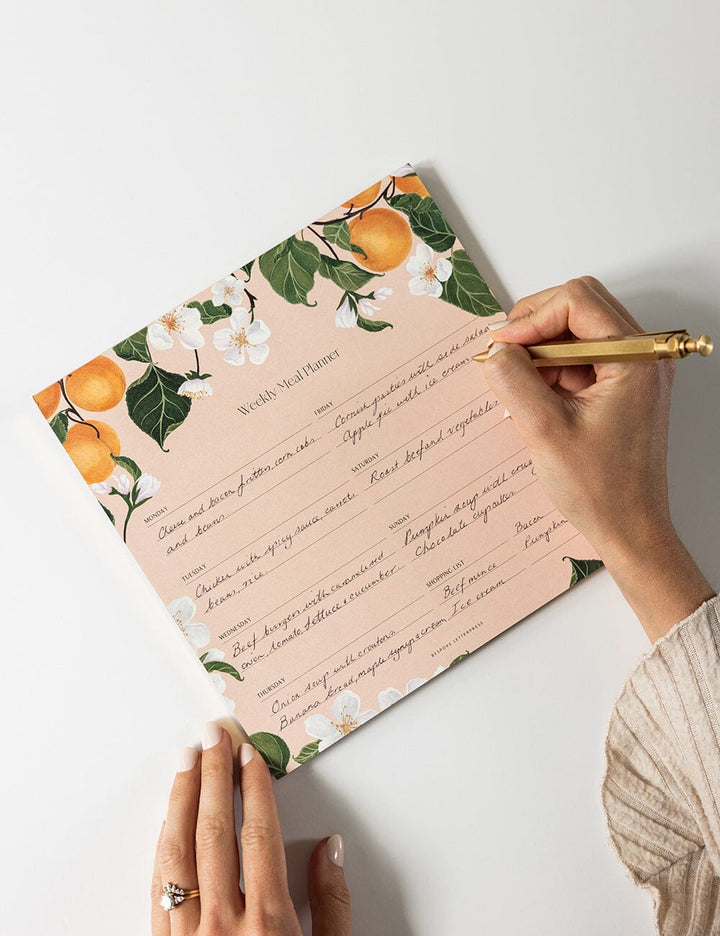 Weekly Meal Planner
MONDAY
Cheese and bacon fritters, corn cobs
and beans
TUESDAY
Chicken with spicy sauce, carrots,
beans, rice
WEDNESDAY
Beef burgers with caramelised
onion, tomato, lettuce & cucumber.
THURSDAY
Onion soup with croutons
Banana bread, maple syrup & cream
FRIDAY
Cornish pasties with side salad
Apple pie with ice cream
SATURDAY
Roast beef and vegetables
SUNDAY
Pumpkin soup with
Chocolate cupcakes
SHOPPING LIST
Beef mince
Ice cream
Bacon
Pumpkin
BESPOKE LETTERPRESS